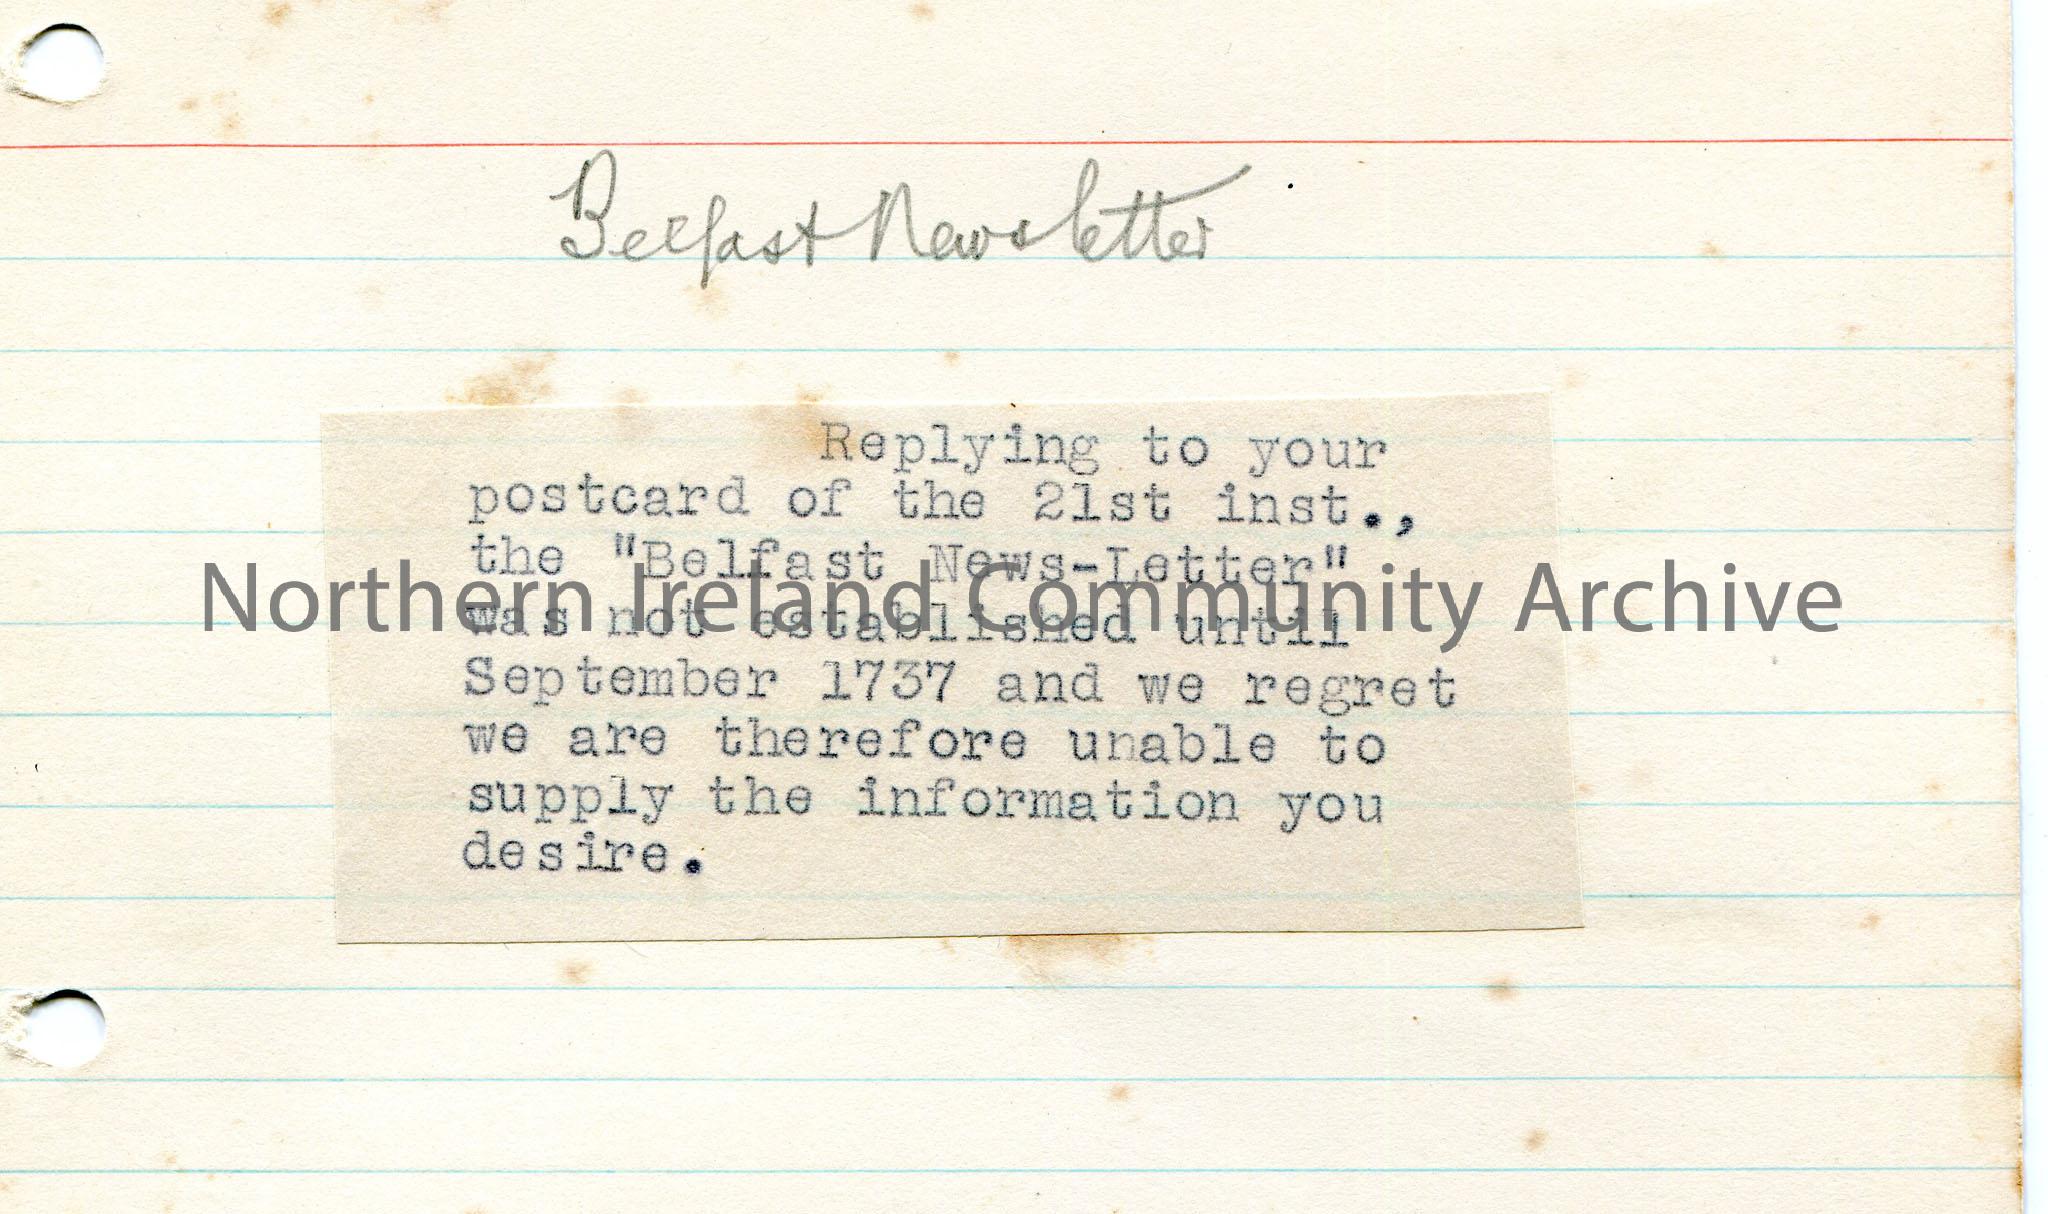 Belfast Newsletter
Replying to your
postcard of the 21st inst.,
the "Belfast News-Letter"
was not established until
September 1737 and we regret
we are therefore unable to
supply the information you
desire.
Northern Ireland Community Archive